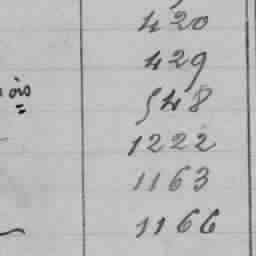 420
429
548
1222
1163
1166